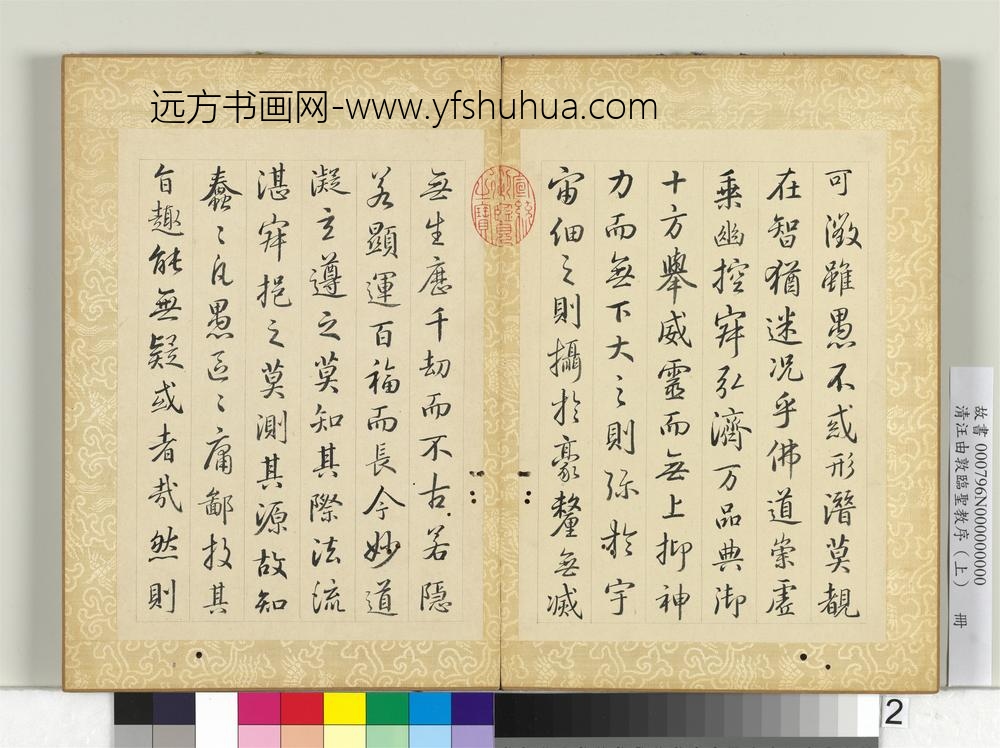 远方书画网-www.yfshuhua.com
可徵雖愚不惑形潛莫覩
在智猶迷況乎佛道崇虛
乘幽控寂弘濟万品典御
十方舉威靈而無上抑神
力而無下大之則弥於宇
宙細之則攝於豪釐無滅
無生歷千劫而不古若隱
若顯運百福而長今妙道
凝玄遵之莫知其際法流
湛寂挹之莫測其源故知
蠢〻凡愚區〻庸鄙投其
旨趣能無疑或者哉然則
故書 000796N000000000
清汪由敦臨聖教序(上) 冊
2